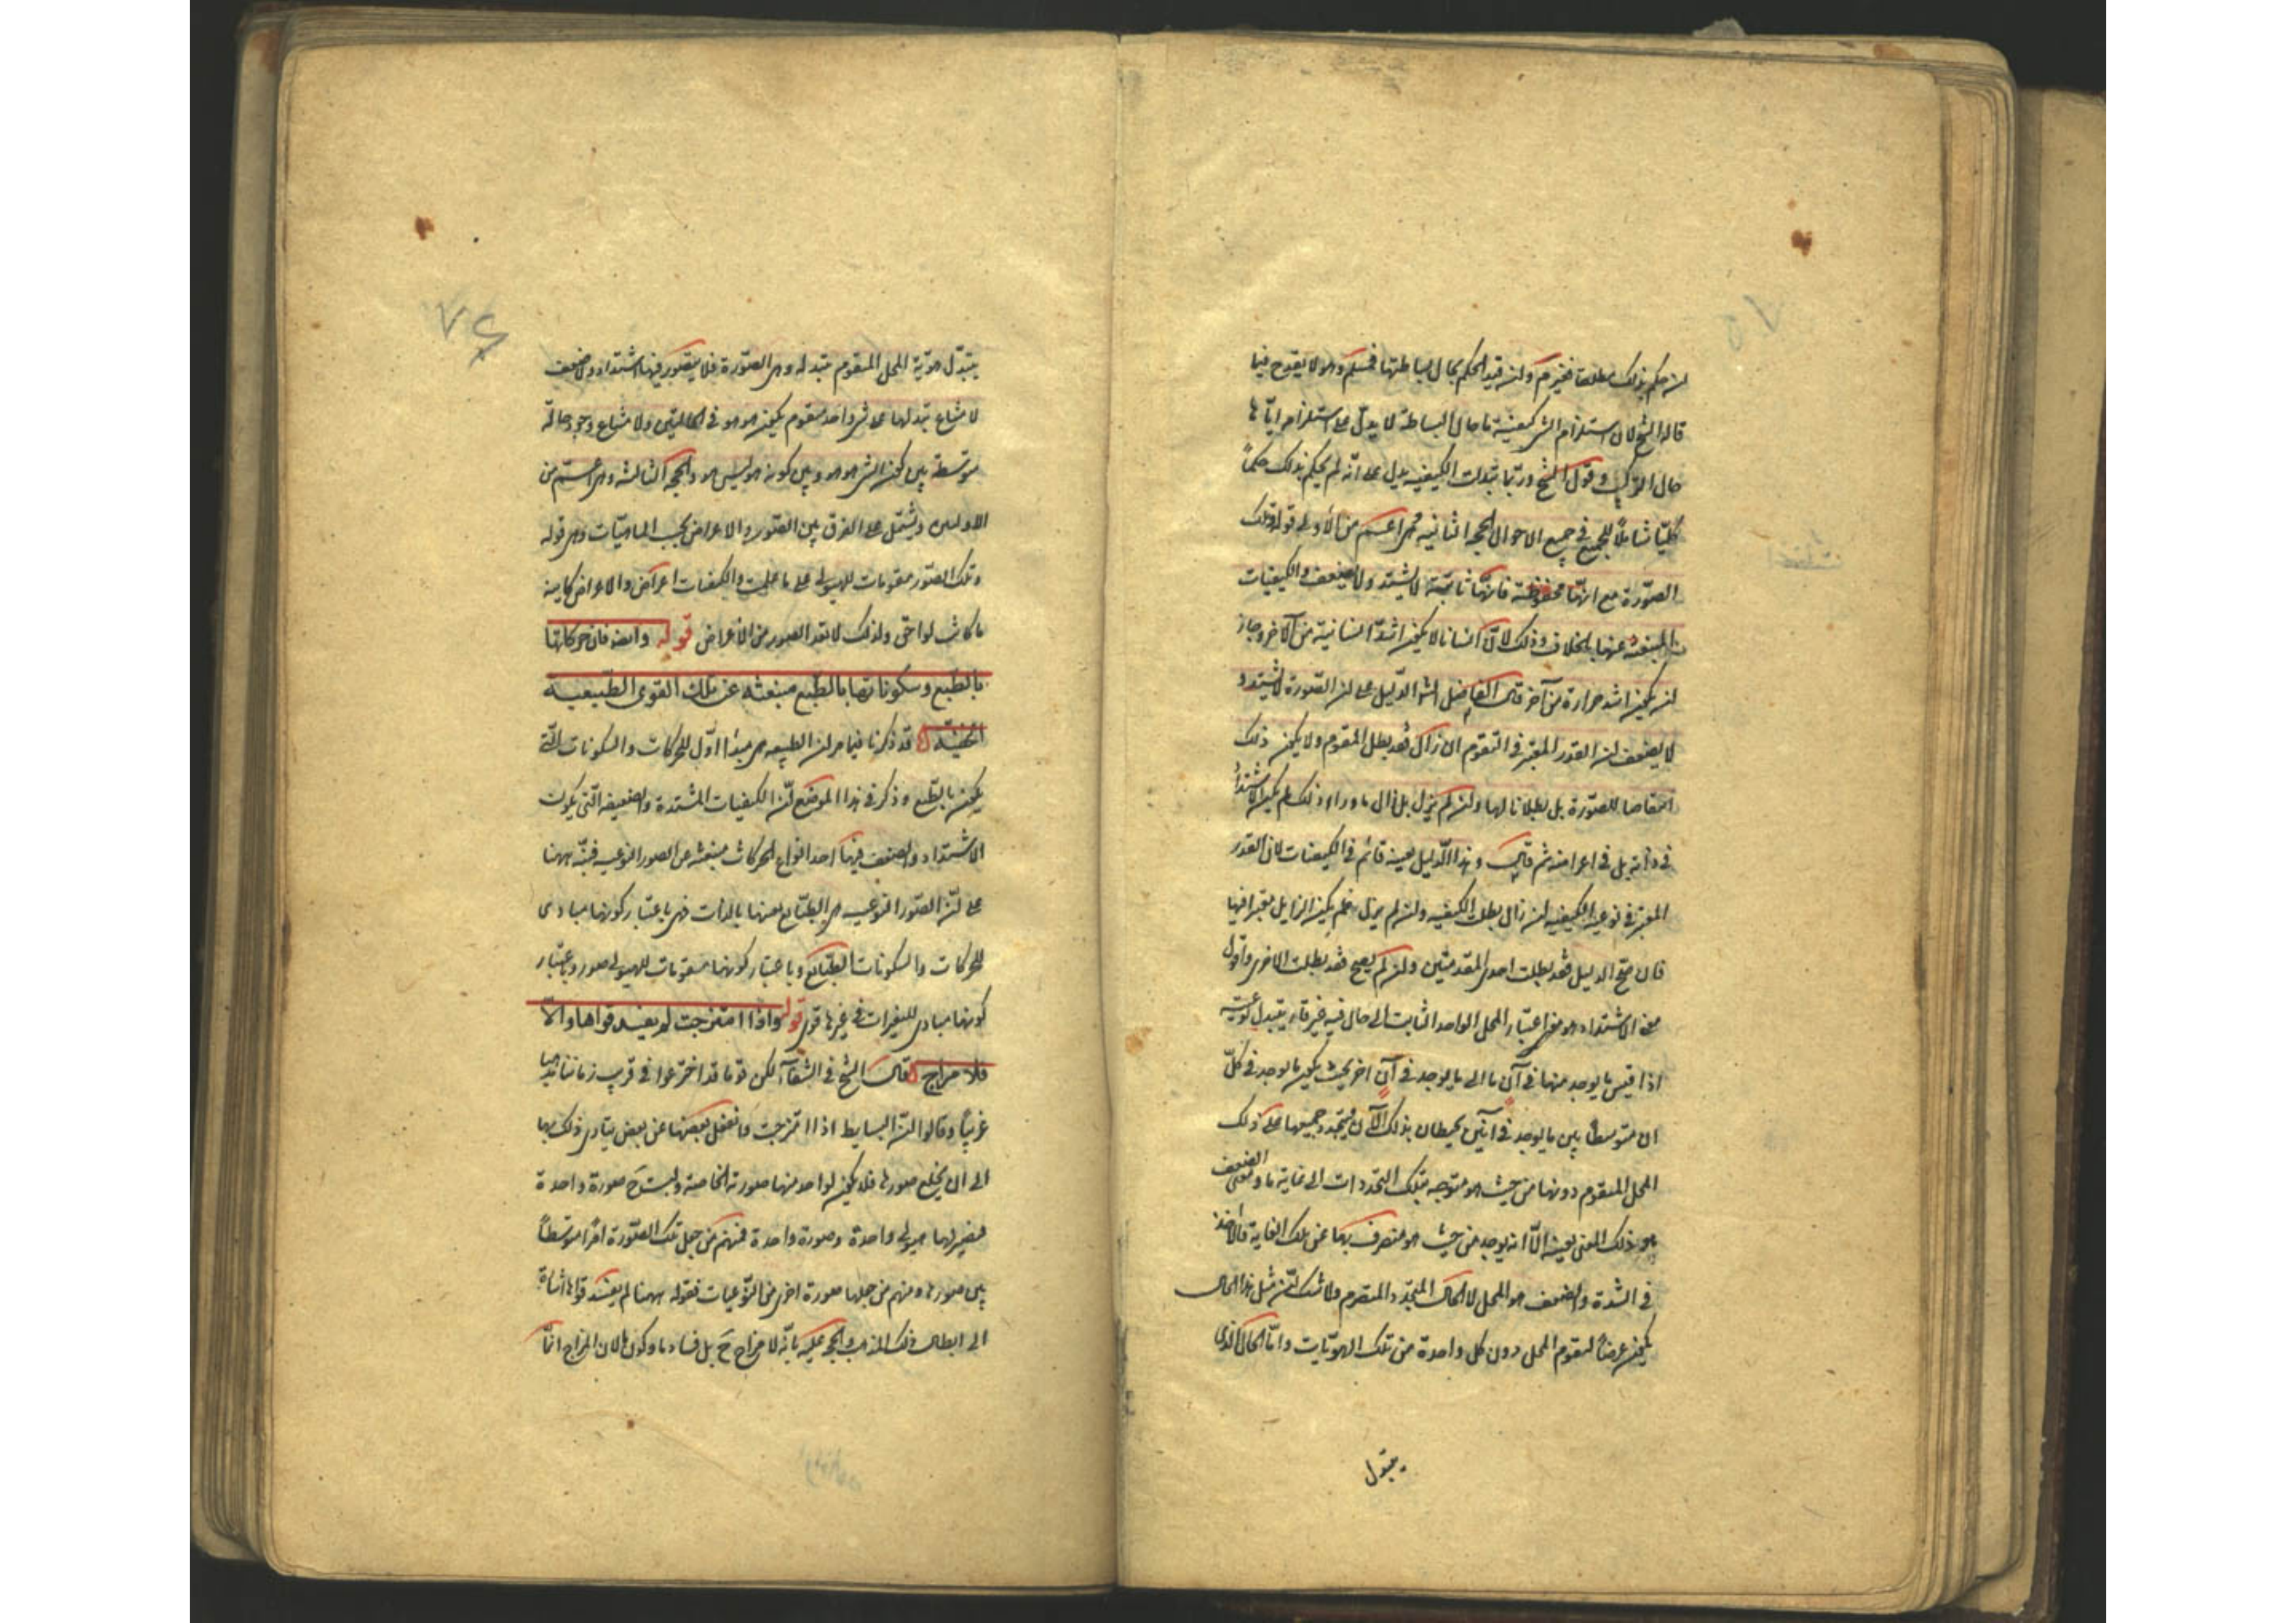 ان حكم بذلك مطلقا فغير مسلم وان قيد الحكم بحال بساطتها فمسلم وهو لا يقدح فيما
قاله الشيخ لان استلزام الشئ كيفية ما حال البساطة لا يدل على استلزامه اياها
حال التركب وقول الشيخ وربما تبدلت الكيفية يدل على انه لم يحكم بذلك حكماً
كلياً شاملاً للجميع في جميع الاحوال الحجة الثانية وهي اعم من الاولى قوله وتلك
الصورة مع انها محفوظة فانها ثابتة لا يشتد ولا يضعف والكيفيات
المنبعثة عنها بالخلاف وذلك لان انسانا لا يكون اشد انسانية من آخر وجاز
ان يكون اشد حرارة من آخر قال الفاضل الشارح الدليل على ان الصورة لا يشتد و
لا يضعف ان القدر المعتبر في التقوم ان زال فقد بطل المقوم ولا يكون ذلك
انتقاصا للصورة بل بطلانا لها وان لم يزل بل زال ما وراء ذلك لم يكن الاشتداد
في ذاته بل في اعراضه ثم قال وهذا الدليل بعينه قائم في الكيفيات لان القدر
المعتبر في نوعية الكيفية ان زال بطلت الكيفية وان لم يزل فلم يكن الزايل معتبرا فيها
فان صح الدليل فقد بطلت احدى المقدمتين وان لم يصح فقد بطلت الاخرى واقول
معنى الاشتداد هو اعتبار المحل الواحد الثابت الى حال فيه غير قار يتبدل نوعيته
اذا قيس ما يوجد منها في آن ما الى ما يوجد في آن اخر بحيث يكون ما يوجد في كل
آن متوسطاً بين ما يوجد في آنين يحيطان بذلك الآن ويتجدد جميعها على ذلك
المحل المتقوم دونها من حيث هو متوجه بتلك التجددات الى غاية ما ومعنى الضعف
هو ذلك المعنى بعينه الا انه يوجد من حيث هو منصرف بها عن تلك الغاية فالآخذ
في الشدة والضعف هو المحل لا الحال المتجدد المتصرم ولا شك ان مثل هذا الحال
يكون عرضاً لتقوم المحل دون كل واحدة من تلك الهويات واما الحال الذي
يتبدل
يتبدل هوية المحل المتقوم بتبدله وهي الصورة فلا يتصور فيها اشتداد ولا ضعف
لامتناع تبدلها على شئ واحد متقوم يكون هو هو في الحالتين ولامتناع وجود حالة
متوسطة بين كون الشئ هو هو وبين كونه هو ليس هو والحجة الثالثة وهي اعم من
الاوليين ويشتمل على الفرق بين الصور والاعراض بحسب الماهيات وهي قوله
وتلك الصور مقومات للهيولى على ما علمت والكيفيات اعراض والاعراض كاينة
ما كانت لواحق ولذلك لا تعد الصور من الاعراض قوله وايضا فان حركاتها
بالطبع وسكوناتها بالطبع منبعثة عن تلك القوى الطبيعية
قد ذكرنا فيما مر ان الطبيعة هي مبدأ اول للحركات والسكونات التي
يكون بالطبع وذكر في هذا الموضع ان الكيفيات المشتدة والضعيفة التي يكون
الاشتداد والضعف فيها احد انواع الحركات منبعثة عن الصور النوعية فنبه ههنا
على ان الصور النوعية هي الطبايع بعينها بالذات فهي باعتبار كونها مبادى
للحركات والسكونات الطبايع وباعتبار كونها مقومات للهيولى صور وباعتبار
كونها مبادى للتغيرات في غيرها قوى قوله واذا امتزجت لم يفسد قواها والا
فلا مزاج قال الشيخ في الشفاء لكن قوما قد اخترعوا في قريب زماننا مذهبا
غريباً وقالوا ان البسايط اذا امتزجت وانفعل بعضها عن بعض يتأدى ذلك بها
الى ان يخلع صورها فلا يكون لواحد منها صورته الخاصة ولبست ح صورة واحدة
فيصير لها هيولى واحدة وصورة واحدة فمنهم من جعل تلك الصورة امراً متوسطاً
بين صورها ومنهم من جعلها صورة اخرى من النوعيات فقوله ههنا لم يفسد قواها اشارة
الى ابطال ذلك المذهب والحجة عليه بانه لا مزاج ح بل فساد ما وكون ما لان المزاج انما